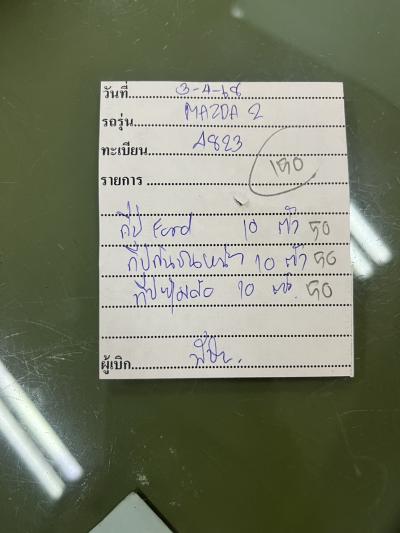 วันที่ 3-4-68
รถรุ่น MAZDA 2
ทะเบียน 4823
รายการ 150
กี๊ป Ford 10 ตัว 50
กี๊ปกันชนหน้า 10 ตัว 50
กี๊ป 10 ตัว 50
ผู้เบิก